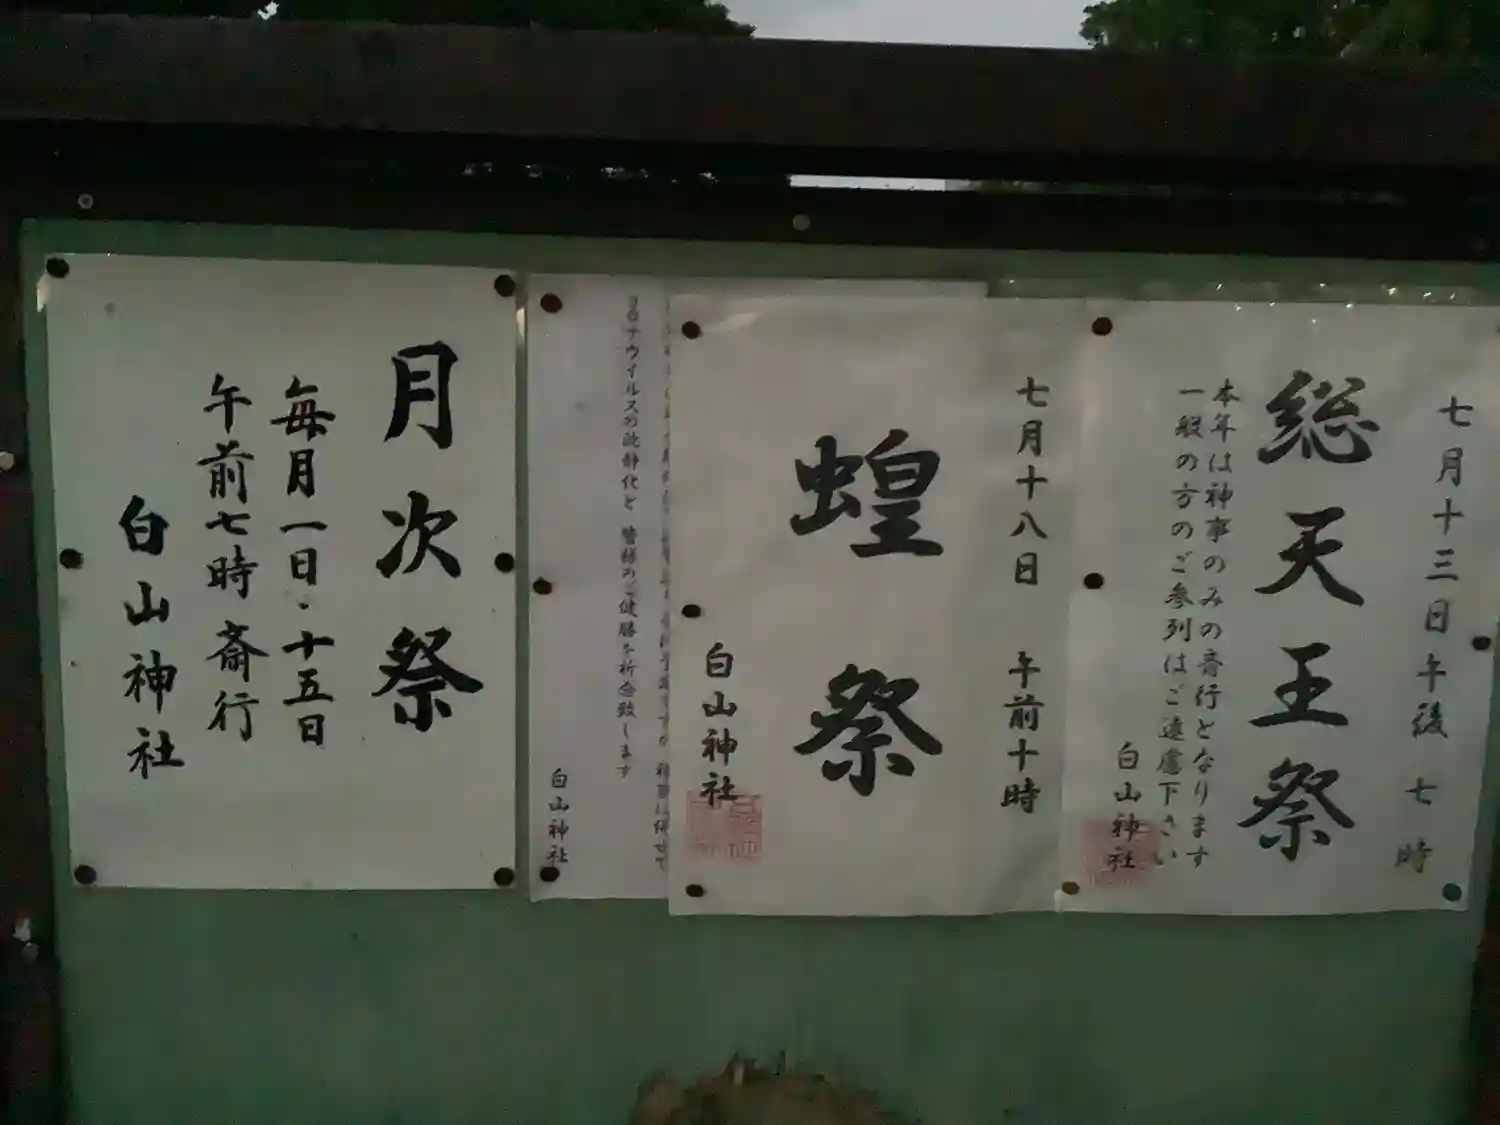 七月十三日午後七時
総天王祭
本年は神事のみの斎行となります
一般の方のご参列はご遠慮下さい
白山神社
七月十八日 午前十時
蝗祭
白山神社
コロナウイルスの沈静化と 皆様のご健勝を祈念致します
白山神社
月次祭
毎月一日・十五日
午前七時斎行
白山神社